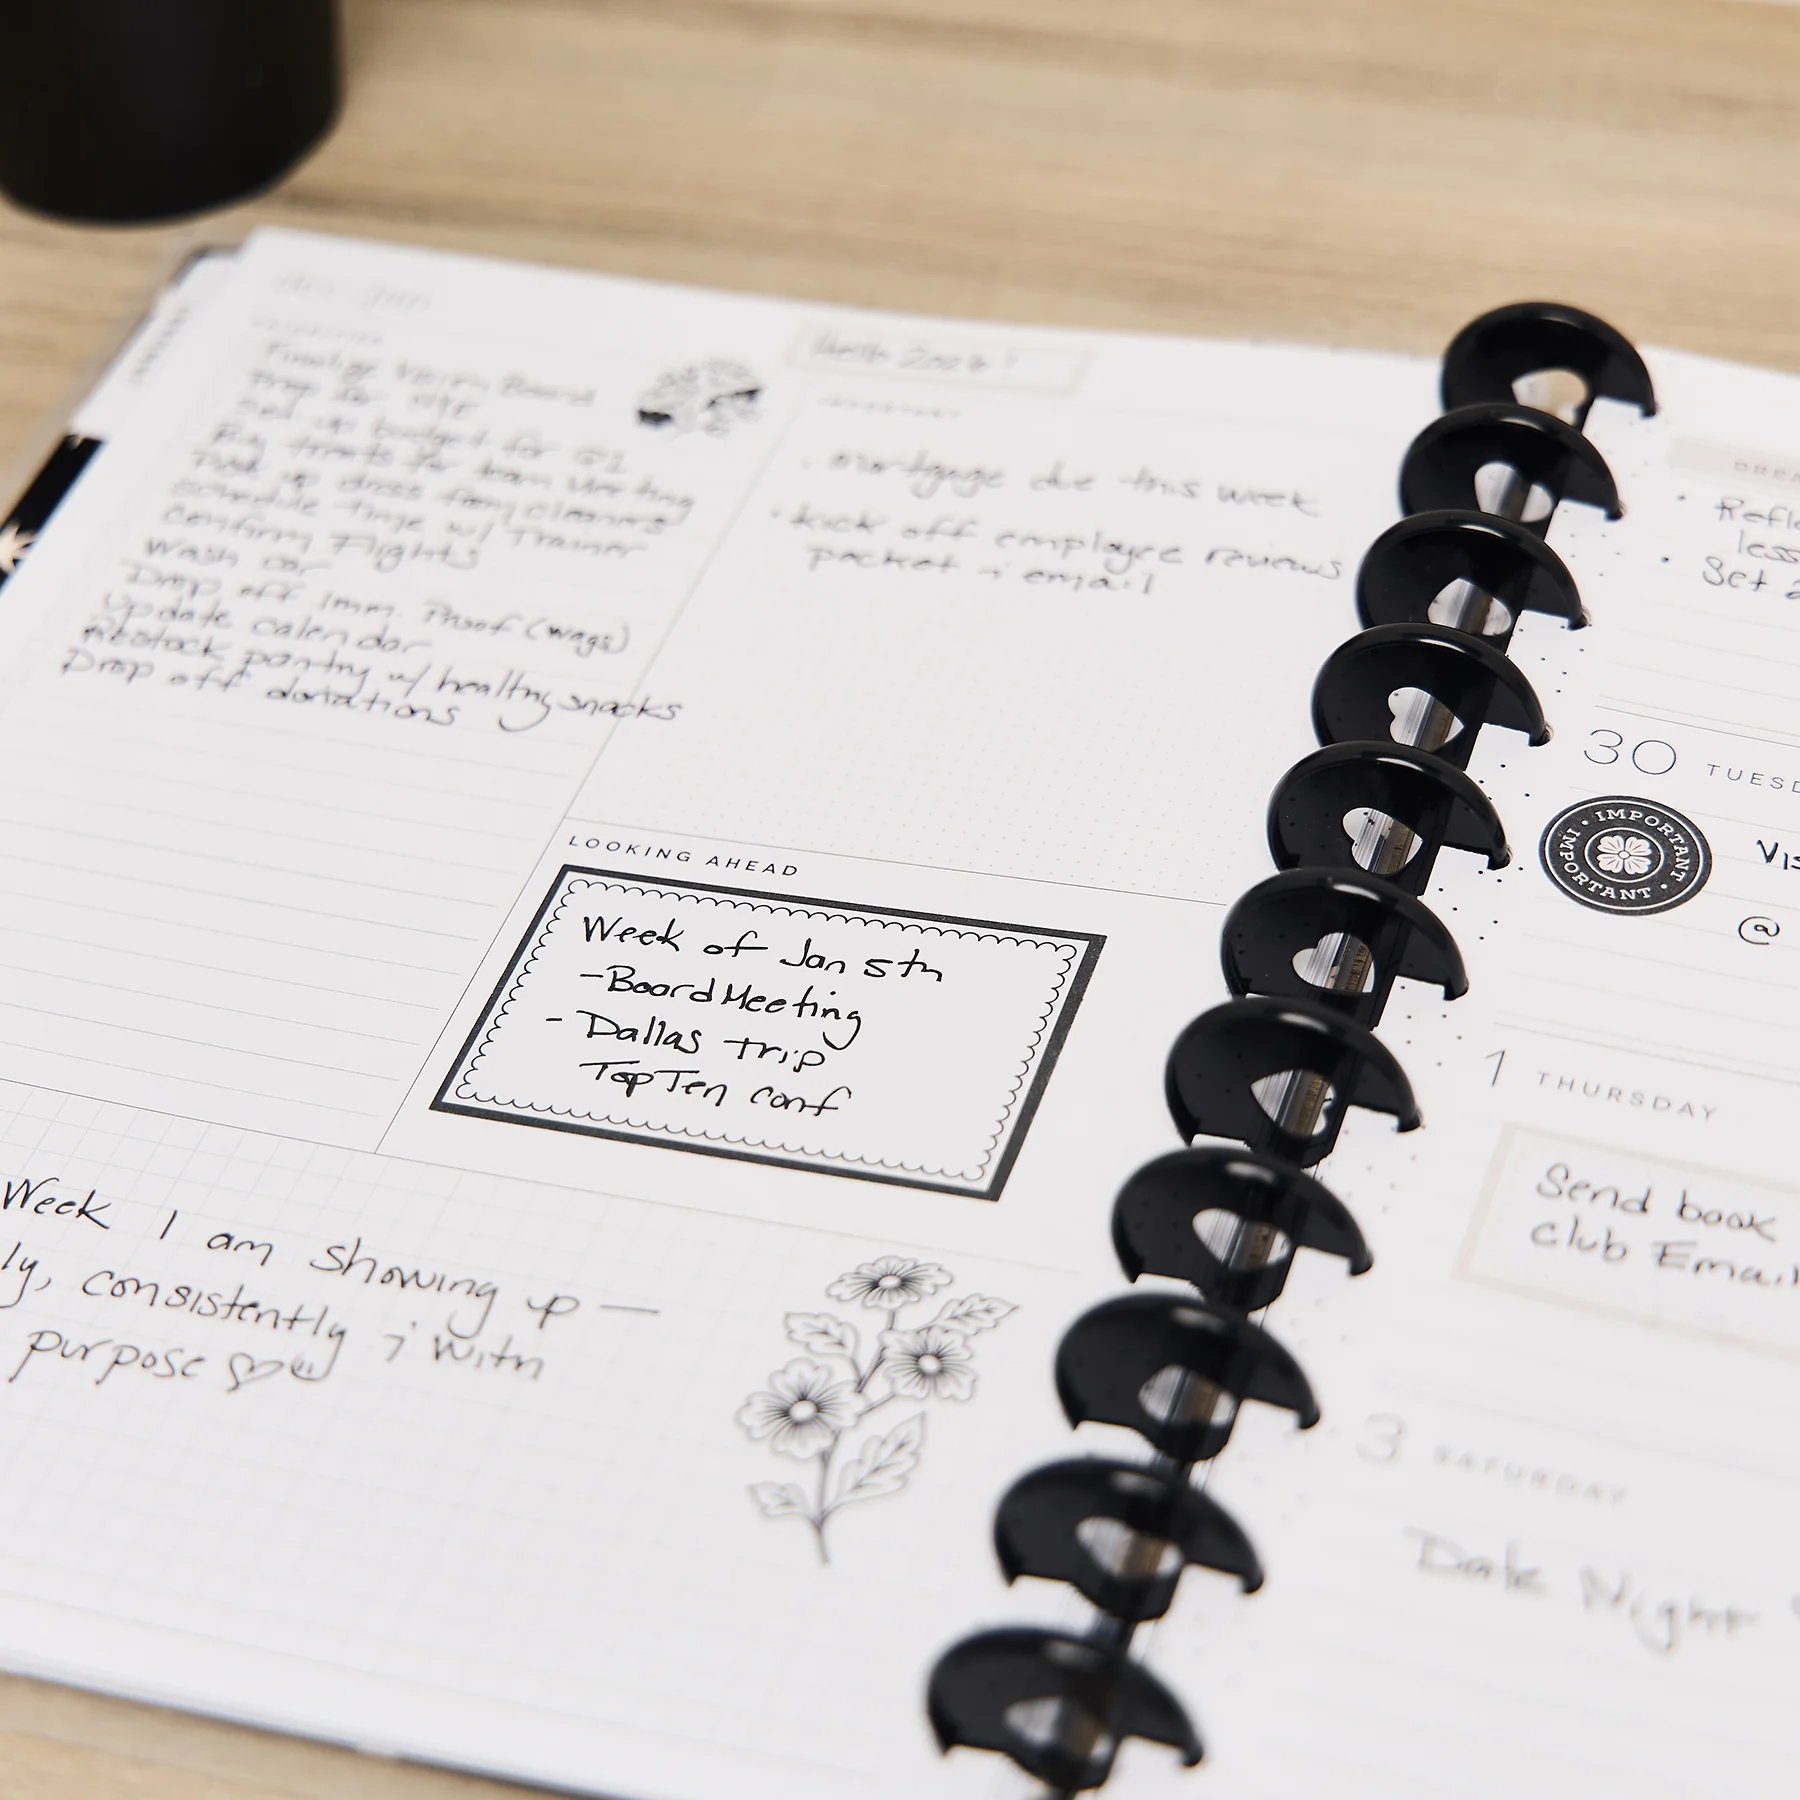 Finalize Vision Board
Prep for NYE
Set up budget for Q1
Buy treats for team Meeting
Pick up dress from cleaners
Schedule time w/ Trainer
Confirm Flights
Wash car
Drop off Imm. Proof (wags)
Update calendar
Restock pantry w/ healthy snacks
Drop off donations
Hello 2026!
IMPORTANT
. mortgage due this week
• kick off employee reviews
packet & email
LOOKING AHEAD
Week of Jan 5th
- Board Meeting
- Dallas trip
TopTen conf
Week I am showing up —
ly, consistently & with
purpose
• Refle
less
• Set 2
30 TUESD
IMPORTANT • IMPORTANT • IMPORTANT •
Vis
@
1 THURSDAY
Send book
club Email
3 SATURDAY
Date Night